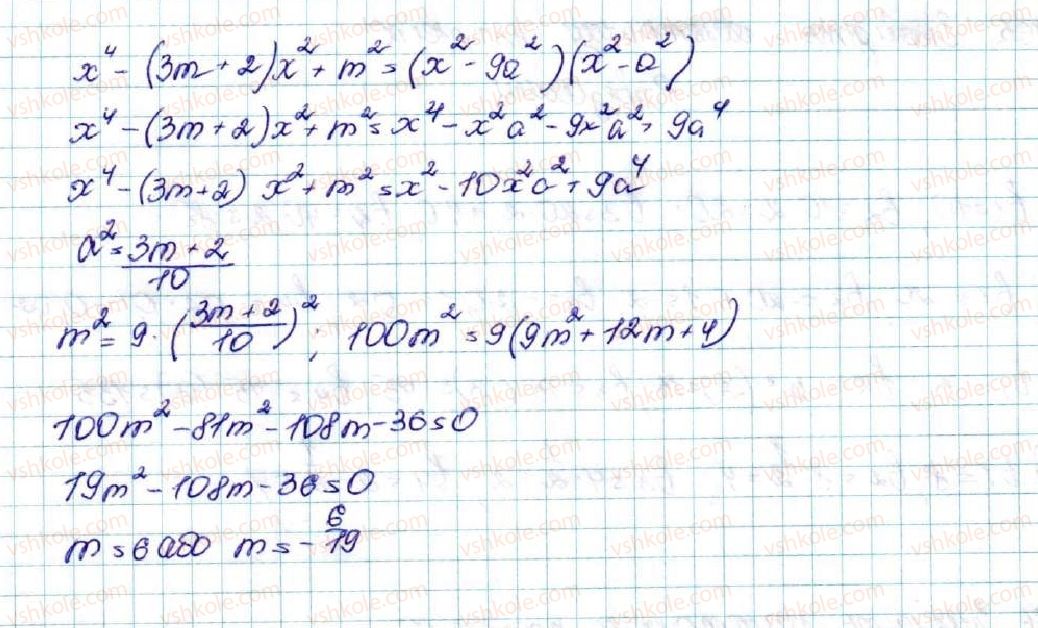 x⁴ - (3m + 2)x² + m² = (x² - 9a²)(x² - a²)
x⁴ - (3m + 2)x² + m² = x⁴ - x²a² - 9x²a² + 9a⁴
x⁴ - (3m + 2) x² + m² = x² - 10x²a² + 9a⁴
a² = (3m + 2)/10
m² = 9 · ((3m + 2)/10)² ; 100m² = 9(9m² + 12m + 4)
100m² - 81m² - 108m - 36 = 0
19m² - 108m - 36 = 0
m = 6 або m = -6/19